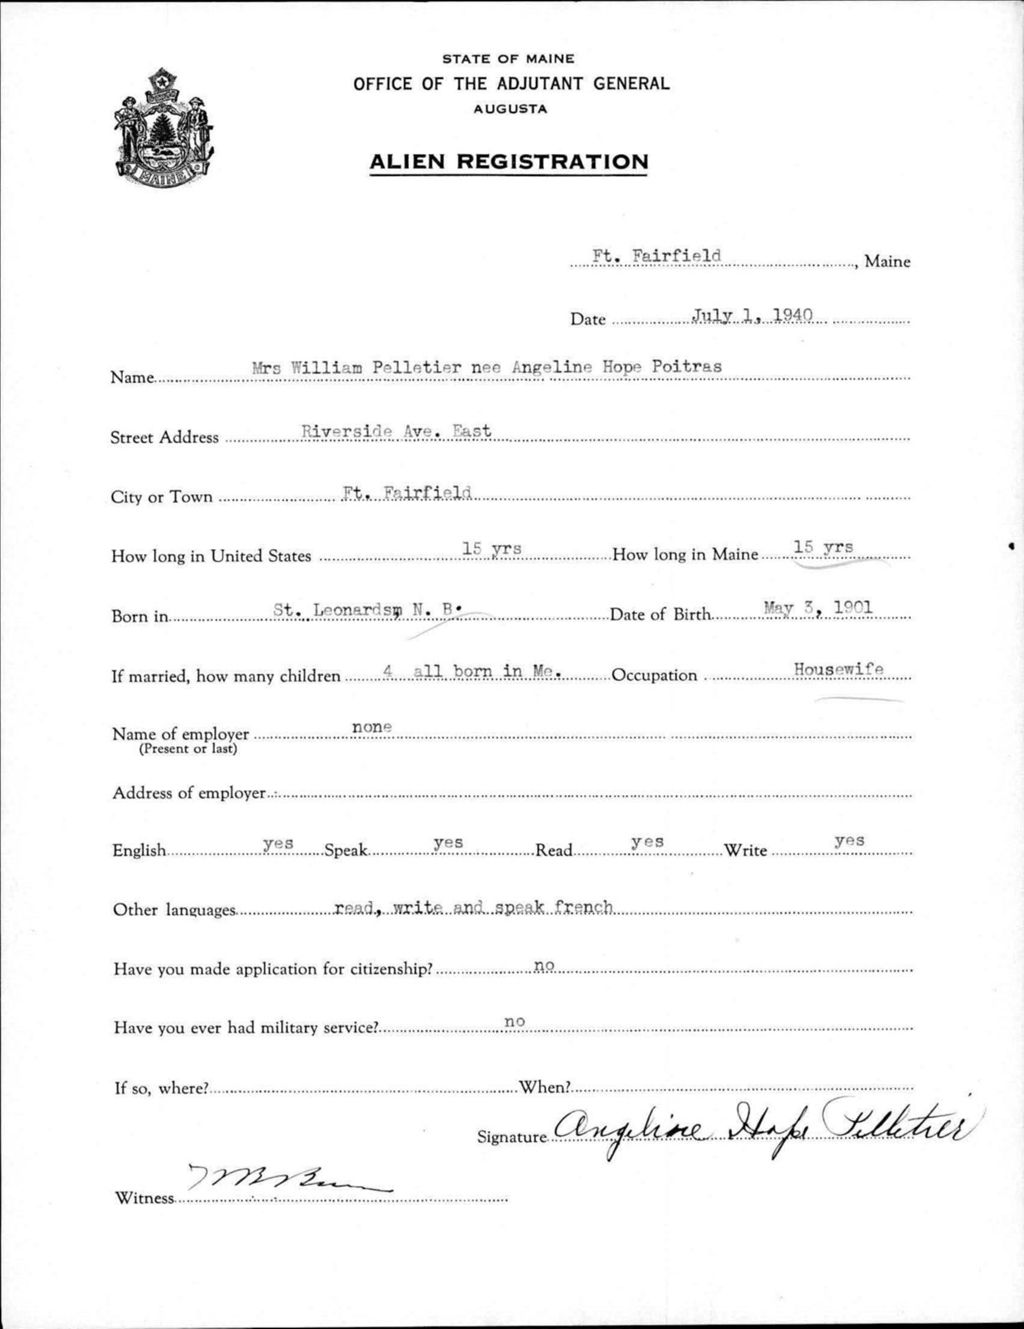 STATE OF MAINE
OFFICE OF THE ADJUTANT GENERAL
AUGUSTA
ALIEN REGISTRATION
MAINE
Ft. Fairfield, Maine
Date July 1, 1940
Name Mrs William Pelletier nee Angeline Hope Poitras
Street Address Riverside Ave. East
City or Town Ft. Fairfield
How long in United States 15 yrs How long in Maine 15 yrs
Born in St. Leonards, N. B. Date of Birth May 3, 1901
If married, how many children 4 all born in Me. Occupation Housewife
Name of employer none
(Present or last)
Address of employer
English yes Speak yes Read yes Write yes
Other languages read, write and speak french
Have you made application for citizenship? no
Have you ever had military service? no
If so, where? When?
Signature Angeline Hope Pelletier
Witness